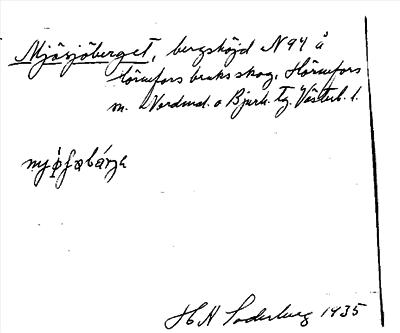 Mjösjöberget, bergshöjd N 94 å
Hörnefors bruks skog, Hörnefors
sn. Nordmal. o Bjurh. tg. Västerb. l.
HN Soderberg 1935